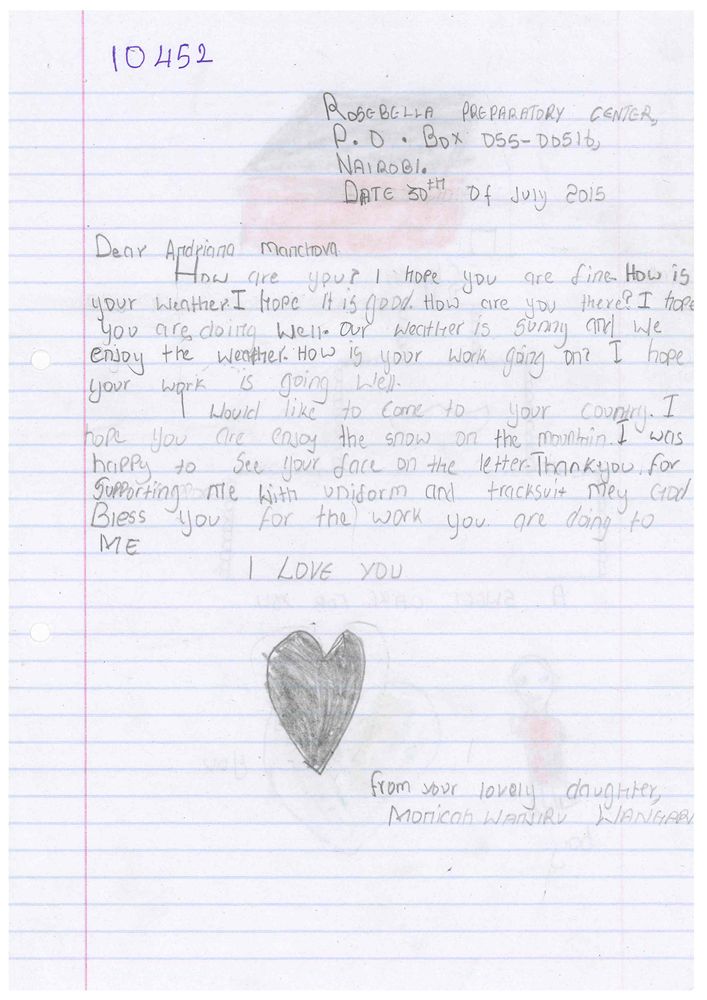 10452
ROSEBELLA PREPARATORY CENTER,
P.O. BOX 055-00516,
NAIROBI.
DATE 30TH Of July 2015
Dear Andriana Manchova
How are you? I hope you are fine. How is
your weather. I hope It is good. How are you there? I hope
you are doing Well. Our weather is sunny and we
enjoy the weather. How is your work going on? I hope
your work is going well.
I Would like to come to your country. I
hope you are enjoy the snow on the mountain. I was
happy to see your face on the letter. Thank you for
Supporting me with uniform and tracksuit Mey God
Bless you for the work you are doing to
ME
I LOVE YOU
A SWEET CAKE FOR YOU
I
You
from your lovely daughter,
Monicah WANJIRU WANGARI